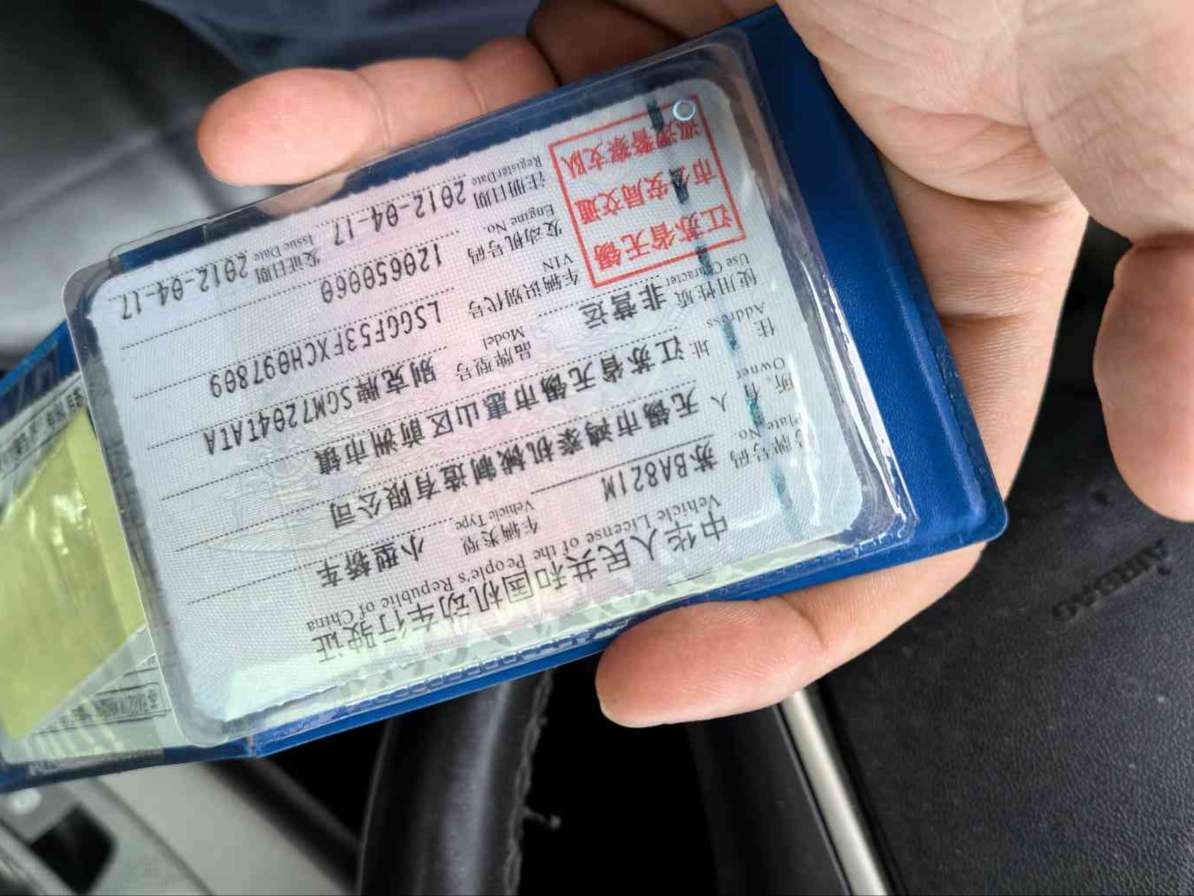 中华人民共和国机动车行驶证
Vehicle License of the People's Republic of China
号牌号码 苏BA821M 车辆类型 小型轿车
Plate No. Vehicle Type
所有人 无锡市鸿泰机械制造有限公司
Owner
住址 江苏省无锡市惠山区前洲市镇
Address
使用性质 非营运 品牌型号 别克牌SGM7204TATA
Use Character Model
江苏省无锡
市公安局交通
巡逻警察支队
车辆识别代号 LSGGF53FXCH097809
VIN
发动机号码 120650060
Engine No.
注册日期 2012-04-17 发证日期 2012-04-17
Register Date Issue Date
AIRBAG